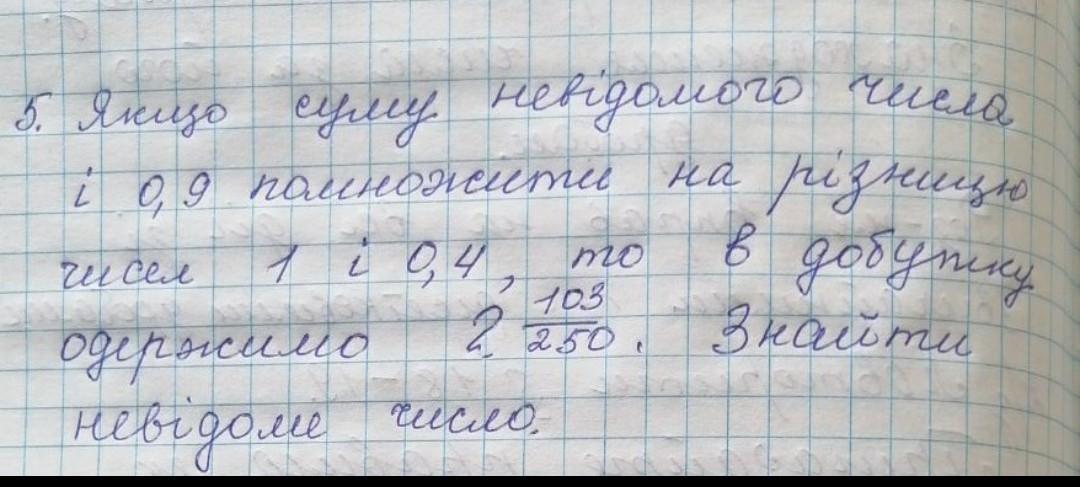 5. Якщо суму невідомого числа
і 0,9 помножити на різницю
чисел 1 і 0,4, то в добутку
одержимо 2 103/250. Знайти
невідоме число.